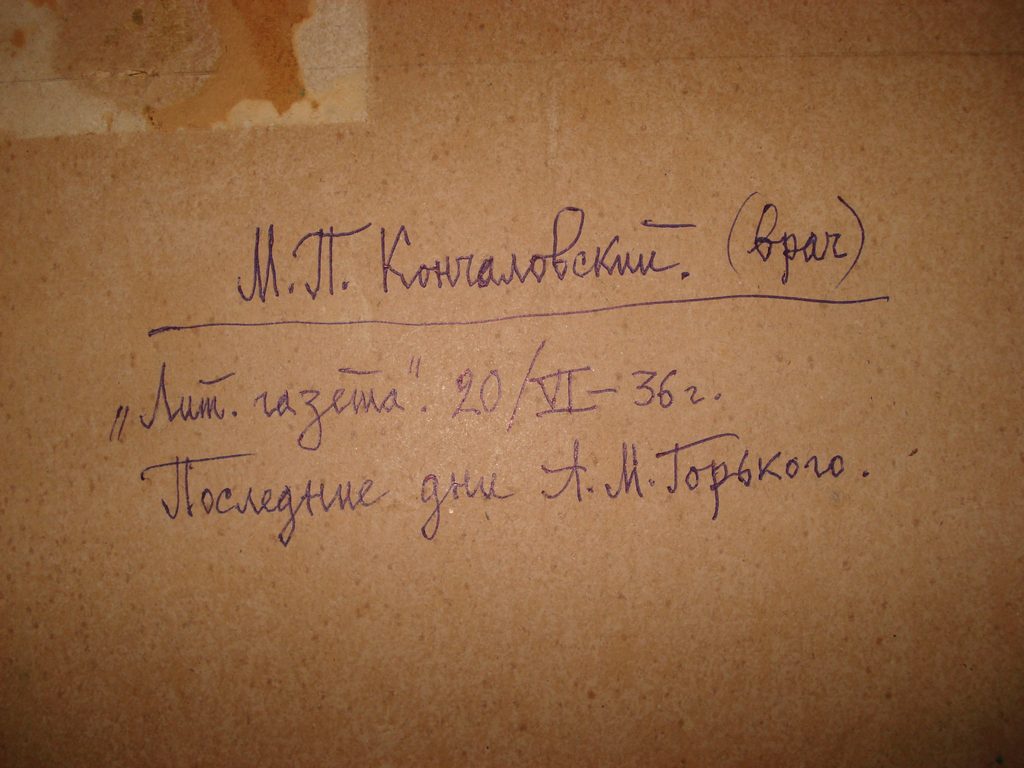 М.П. Кончаловский. (врач)
„Лит. газета". 20/VI–36 г.
Последние дни А.М.Горького.